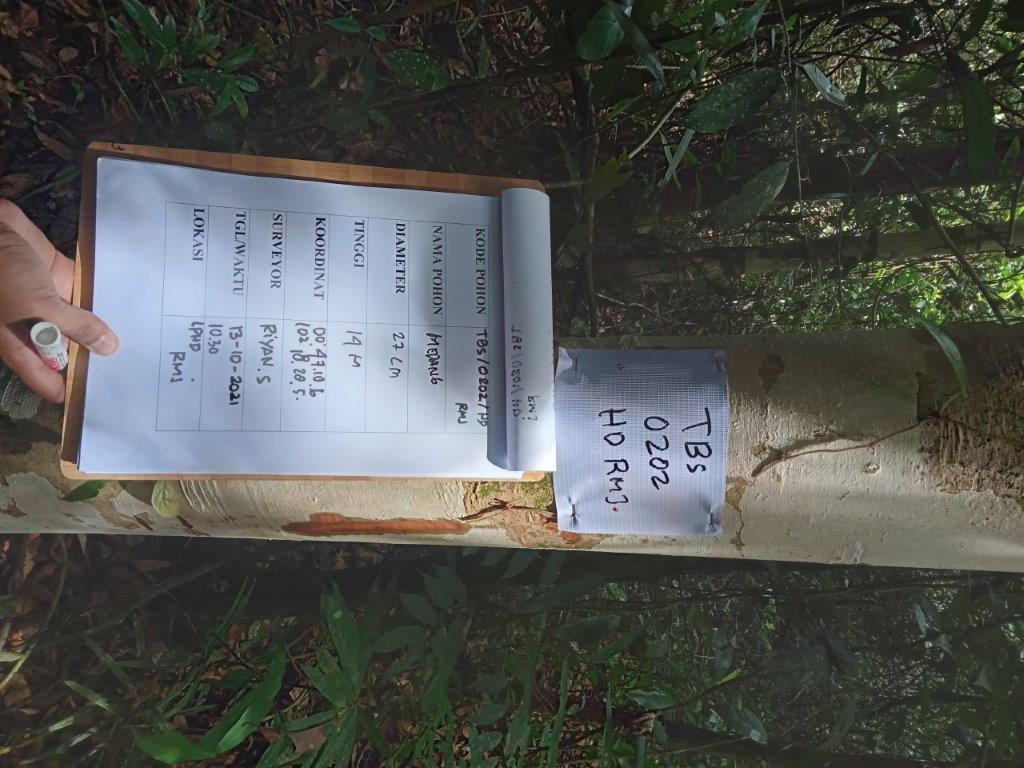 TBs
0202
HD RMJ.
KODE POHON TBs/0202/HD
RMJ
NAMA POHON MEDANG
DIAMETER 27 CM
TINGGI 14 M
KOORDINAT 00°47.10.6
102°18.28.5.
SURVEYOR RIYAN.S
TGL/WAKTU 13-10-2021
10.30
LOKASI LPHD
RMJ